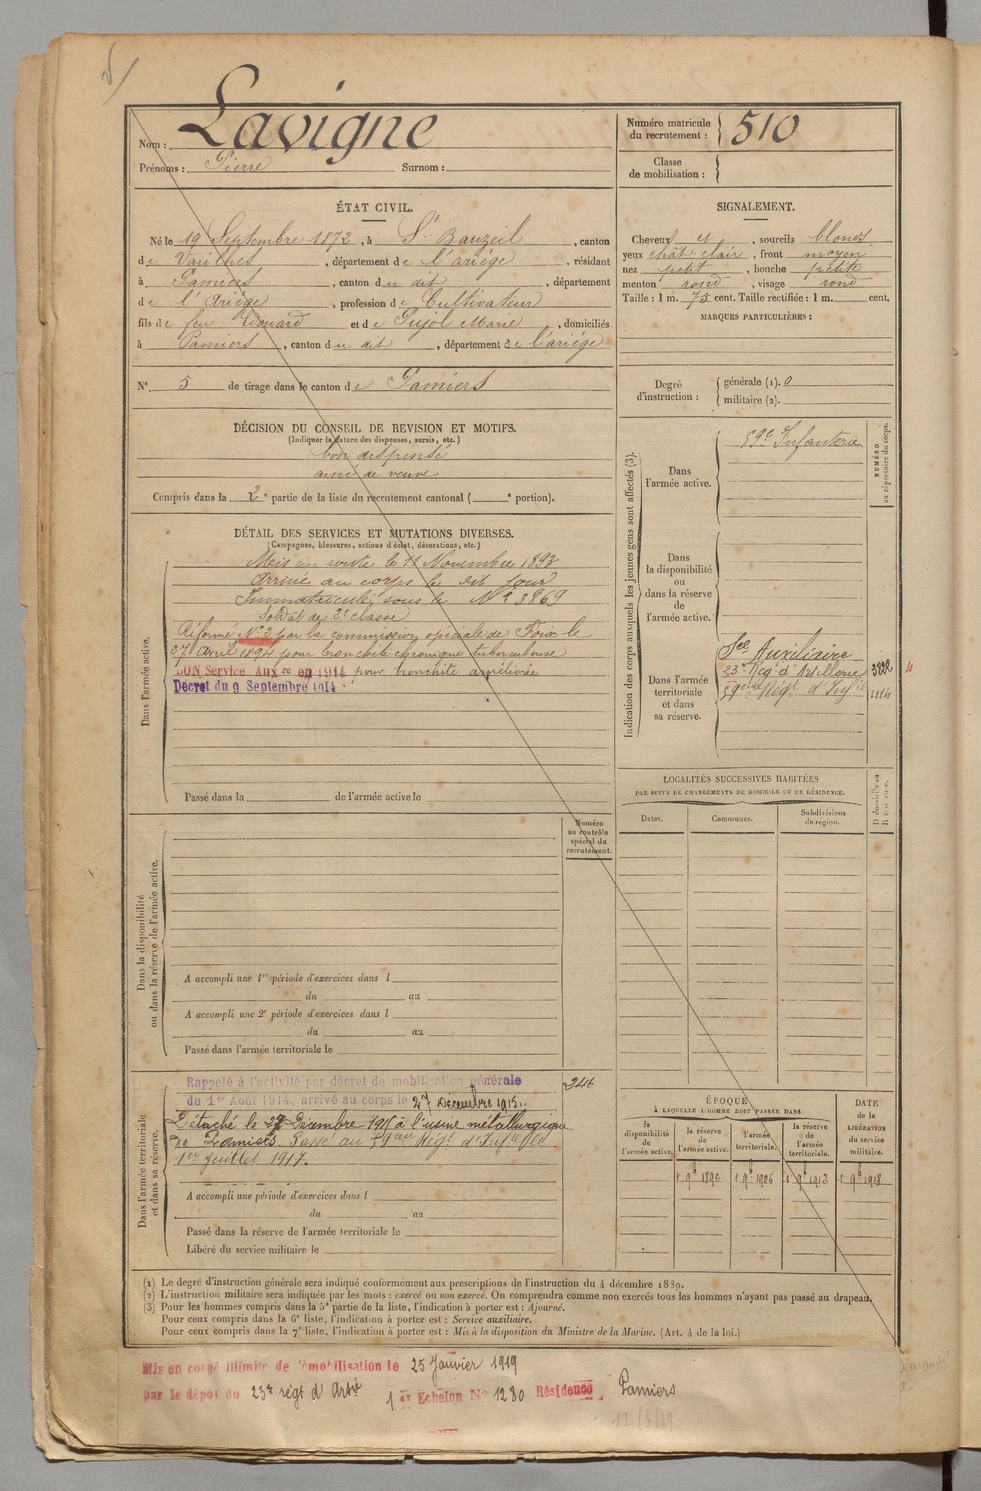 Nom : Lavigne
Prénoms : Pierre Surnom :
Numéro matricule du recrutement : 510
Classe de mobilisation :
ÉTAT CIVIL.
Né le 19 Septembre 1872, à St Bauzeil, canton
de Varilhes, département de l'ariège, résidant
à Pamiers, canton du dit, département
de l'Ariège, profession de Cultivateur
fils de feu Edouard et de Pujol Marie, domiciliés
à Pamiers, canton du dit, département de l'ariège
N° 5 de tirage dans le canton de Pamiers
SIGNALEMENT.
Cheveux et, sourcils blonds
yeux chât. clair, front moyen
nez petit, bouche petite
menton rond, visage rond
Taille : 1 m. 75 cent. Taille rectifiée : 1 m. cent.
MARQUES PARTICULIÈRES :
Degré d'instruction : générale (1). 0
militaire (2).
DÉCISION DU CONSEIL DE REVISION ET MOTIFS.
(Indiquer la nature des dispenses, sursis, etc.)
bon dispensé
ainé de veuve
Compris dans la 2e partie de la liste du recrutement cantonal ( e portion).
DÉTAIL DES SERVICES ET MUTATIONS DIVERSES.
(Campagnes, blessures, actions d'éclat, décorations, etc.)
Dans l'armée active.
Mis en route le 11 Novembre 1893
Arrivé au corps le dit jour
Immatriculé sous le N° 3869
Soldat de 2e classe
Réformé N° 2 par la commission spéciale de Foix le
27 Avril 1894 pour bronchite chronique tuberculeuse
BON Service Auxre en 1914 pour bronchite améliorée
Décret du 9 Septembre 1914
Passé dans la de l'armée active le
Indication des corps auxquels les jeunes gens sont affectés (3).
NUMÉRO au répertoire du corps.
Dans l'armée active.
59e Infanterie
Dans la disponibilité ou dans la réserve de l'armée active.
Dans l'armée territoriale et dans sa réserve.
Sce Auxiliaire
23e Reg. d'Artillerie 3822 4
59eme Régt d'Infie 1114
LOCALITÉS SUCCESSIVES HABITÉES
PAR SUITE DE CHANGEMENTS DE DOMICILE OU DE RÉSIDENCE.
Dates. Communes. Subdivisions de région. D domicile ou R résidence.
Dans la disponibilité ou dans la réserve de l'armée active.
Numéro au contrôle spécial du recrutement.
A accompli une 1re période d'exercices dans l
du au
A accompli une 2e période d'exercices dans l
du au
Passé dans l'armée territoriale le
Dans l'armée territoriale et dans sa réserve.
Rappelé à l'activité par décret de mobilisation générale 246
du 1er Août 1914, arrivé au corps le 27 Décembre 1915.
Détaché le 27 Décembre 1915 à l'usine métallurgique
de Pamiers. Passé au 59eme Régt d'Infie le
1er Juillet 1917.
A accompli une période d'exercices dans l
du au
Passé dans la réserve de l'armée territoriale le
Libéré du service militaire le
ÉPOQUE
À LAQUELLE L'HOMME DOIT PASSER DANS
la disponibilité de l'armée active. la réserve de l'armée active. l'armée territoriale. la réserve de l'armée territoriale.
DATE de la LIBÉRATION du service militaire.
1 9b 1896 1 9b 1906 1 9b 1912 1 9b 1918
(1) Le degré d'instruction générale sera indiqué conformément aux prescriptions de l'instruction du 4 décembre 1889.
(2) L'instruction militaire sera indiquée par les mots : exercé ou non exercé. On comprendra comme non exercés tous les hommes n'ayant pas passé au drapeau.
(3) Pour les hommes compris dans la 5e partie de la liste, l'indication à porter est : Ajourné.
Pour ceux compris dans la 6e liste, l'indication à porter est : Service auxiliaire.
Pour ceux compris dans la 7e liste, l'indication à porter est : Mis à la disposition du Ministre de la Marine. (Art. 4 de la loi.)
Mis en congé illimité de démobilisation le 25 Janvier 1919
par le dépôt du 23e régt d'Artie 1er Echelon N° 1280 Résidence Pamiers
12/8/19